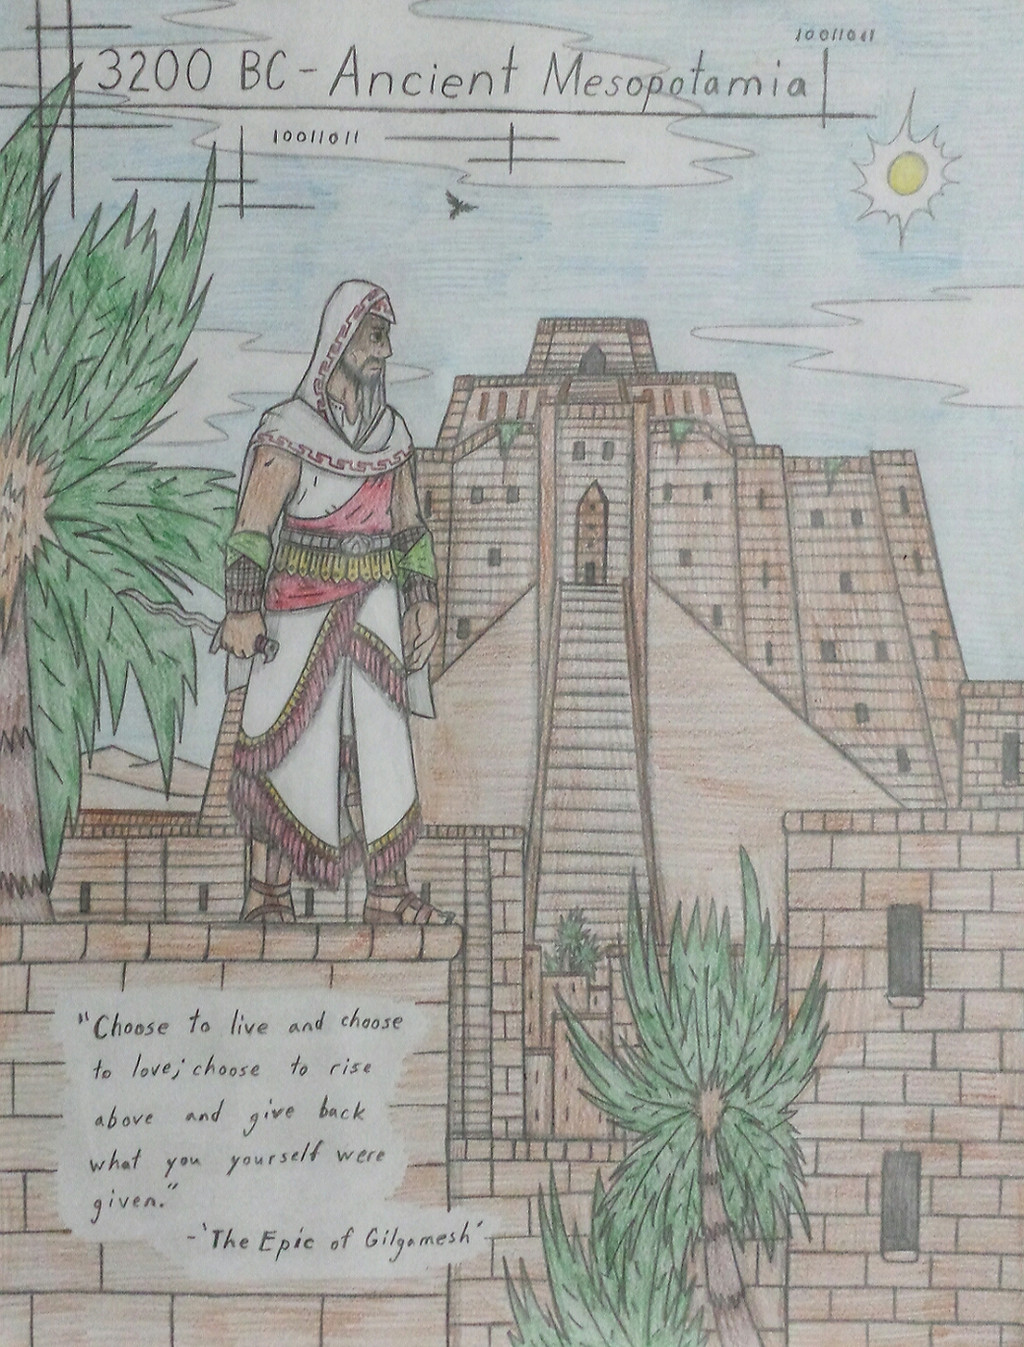 10011011
3200 BC - Ancient Mesopotamia
10011011
"Choose to live and choose
to love; choose to rise
above and give back
what you yourself were
given."
-'The Epic of Gilgamesh'